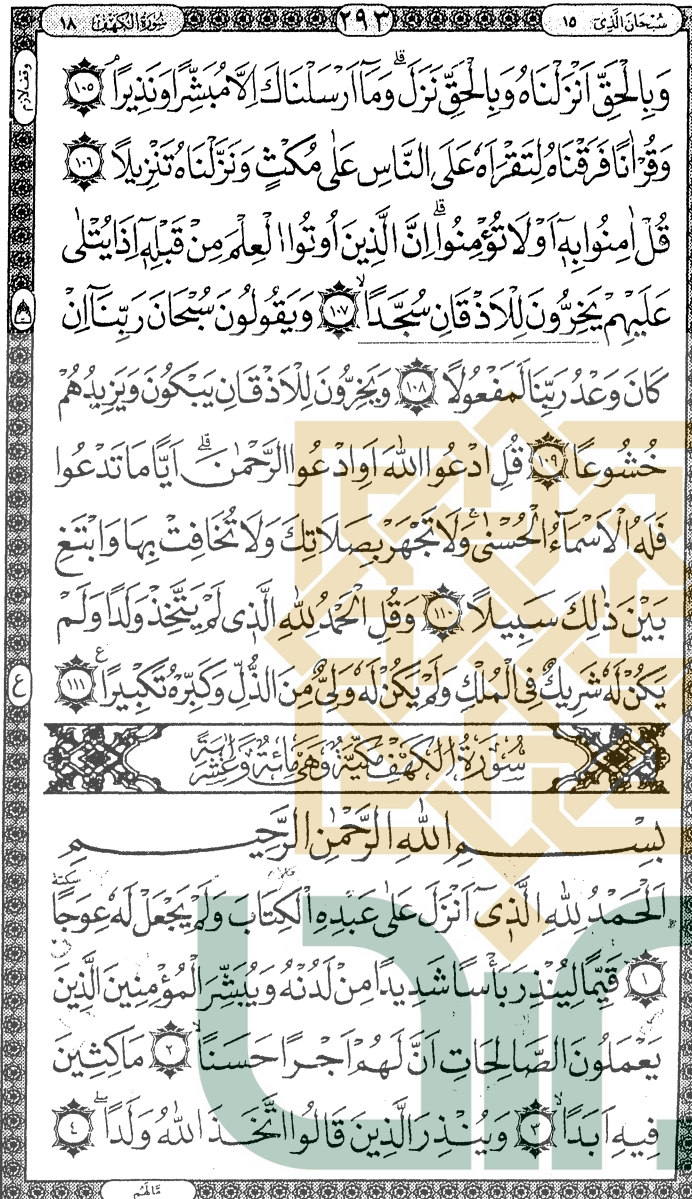 سُبْحَانَ الَّذِىۤ ١٥
٢٩٣
سُورَةُ الْكَهْفِ ١٨
وَبِالْحَقِّ اَنْزَلْنَاهُ وَبِالْحَقِّ نَزَلَ ۗ وَمَٓا اَرْسَلْنَاكَ اِلَّا مُبَشِّرًا وَنَذِيرًا ۘ ١٠٥
وقف لازم
وَقُرْاٰنًا فَرَقْنَاهُ لِتَقْرَاَهُ عَلَى النَّاسِ عَلٰى مُكْثٍ وَنَزَّلْنَاهُ تَنْزِيلًا ١٠٦
قُلْ اٰمِنُوا بِهٖٓ اَوْ لَا تُؤْمِنُوا ۗ اِنَّ الَّذِينَ اُو۫تُوا الْعِلْمَ مِنْ قَبْلِهٖٓ اِذَا يُتْلٰى
عَلَيْهِمْ يَخِرُّونَ لِلْاَذْقَانِ سُجَّدًا ۙ ١٠٧ وَيَقُولُونَ سُبْحَانَ رَبِّنَٓا اِنْ
كَانَ وَعْدُ رَبِّنَا لَمَفْعُولًا ١٠٨ وَيَخِرُّونَ لِلْاَذْقَانِ يَبْكُونَ وَيَزِيدُهُمْ
خُشُوعًا ١٠٩ قُلِ ادْعُوا اللّٰهَ اَوِ ادْعُوا الرَّحْمٰنَ ۗ اَيًّا مَا تَدْعُوا
فَلَهُ الْاَسْمَٓاءُ الْحُسْنٰى ۚ وَلَا تَجْهَرْ بِصَلَاتِكَ وَلَا تُخَافِتْ بِهَا وَابْتَغِ
بَيْنَ ذٰلِكَ سَبِيلًا ١١٠ وَقُلِ الْحَمْدُ لِلّٰهِ الَّذِى لَمْ يَتَّخِذْ وَلَدًا وَلَمْ
يَكُنْ لَهُ شَرِيكٌ فِى الْمُلْكِ وَلَمْ يَكُنْ لَهُ وَلِىٌّ مِنَ الذُّلِّ وَكَبِّرْهُ تَكْبِيرًا ١١١
ع
سُورَةُ الْكَهْفِ مَكِّيَّةٌ وَهِىَ مِائَةٌ وَعَشْرُ اٰيَةً
بِسْمِ اللّٰهِ الرَّحْمٰنِ الرَّحِيمِ
اَلْحَمْدُ لِلّٰهِ الَّذِىٓ اَنْزَلَ عَلٰى عَبْدِهِ الْكِتَابَ وَلَمْ يَجْعَلْ لَهُ عِوَجًا سكتة
١ قَيِّمًا لِيُنْذِرَ بَأْسًا شَدِيدًا مِنْ لَدُنْهُ وَيُبَشِّرَ الْمُؤْمِنِينَ الَّذِينَ
يَعْمَلُونَ الصَّالِحَاتِ اَنَّ لَهُمْ اَجْرًا حَسَنًا ۙ ٢ مَاكِثِينَ
فِيهِ اَبَدًا ۙ ٣ وَيُنْذِرَ الَّذِينَ قَالُوا اتَّخَذَ اللّٰهُ وَلَدًا ٤
مَالَهُمْ